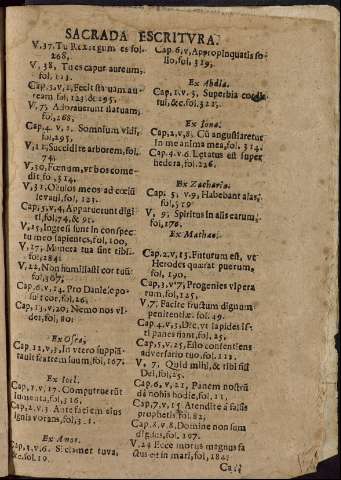 SACRADA ESCRITVRA.
V, 37, Tu Rex regum es fol.
268,
V, 38, Tu es caput aureum,
fol, 113.
Cap. 3, v, 2, Fecit statuam au-
ream fol, 123, & 295,
V, 7, Adoraverunt statuam,
fol, 268,
Cap. 4. v. 1. Somnium vidi,
fol, 295,
V, 11, Succidite arborem, fol,
74,
V, 30, Foenum, vt bos come-
dit fo. 314.
V, 31, Oculos meos ad coelū
levaui, fol, 123.
Cap, 5, v, 4, Apparuerunt digi
ti, fol, 74, & 91.
V, 15, Ingressi sunt in conspec
tu meo sapientes, fol, 100,
V, 17, Munera tua sint tibi.
fol, 284:
V, 22, Non humiliasti cor tuū
fol, 367,
Cap, 6, v. 14. Pro Daniele po-
suit cor, fol, 26,
Cap, 13, v, 20, Nemo nos vi-
det, fol, 80:
Ex Osea,
Cap, 12, v, 3, In vtero supplā-
tauit fratrem suum, fol, 167.
Ex Ioel.
Cap, 1, v, 17. Computrue rūt
iumenta, fol, 316,
Cap, 2, v. 3 Ante faciem eius
ignis vorans, fol, 3
Ex Amos.
Cap, 3, v. 6. Si clamet tuva,
&c. fol 19.
Cap. 6, v, Appropinquatis so-
lio, fol, 319,
Ex Abdia.
Cap, 1. v. 3, Superbia cordis
tui, &c. fol. 322,
Ex Iona.
Cap, 2, v, 8, Cū angustiaretur
In me anima mea, fol. 314.
Cap, 4. v. 6 Lętatus est super
hedera, fol. 226.
Ex Zacharia.
Cap, 5, v. 9, Habebant alas,
fol, 519
V, 9, Spiritus in alis earum,
fol, 176.
Ex Mathæo.
Cap, 2, v, 13, Futurum est, vt
Herodes quærat puerum,
fol, 190,
Cap, 3, v, 7, Progenies vipera
rum, fol, 125,
V, 7, Facite fructum dignum
penitentiæ. fol. 49.
Cap, 4, v, 3, Dic, vt lapides is-
ti panes fiant, fol, 25,
Cap, 5, v, 25, Esto consentiens
adversario tuo, fol. 111.
V, 7, Quid mihi, & tibi fili
Dei, fol, 25,
Cap, 6, v, 21, Panem nostrū
da nobis hodie, fol, 21,
Cap, 7, v, 15, Atendite à falsis
prophetis fol, 82,
Cap, 8, v, 8, Domine non sum
dignus, fol. 197.
V, 24 Ecce motus magnus fa
ctus est in mari, fol, 184: